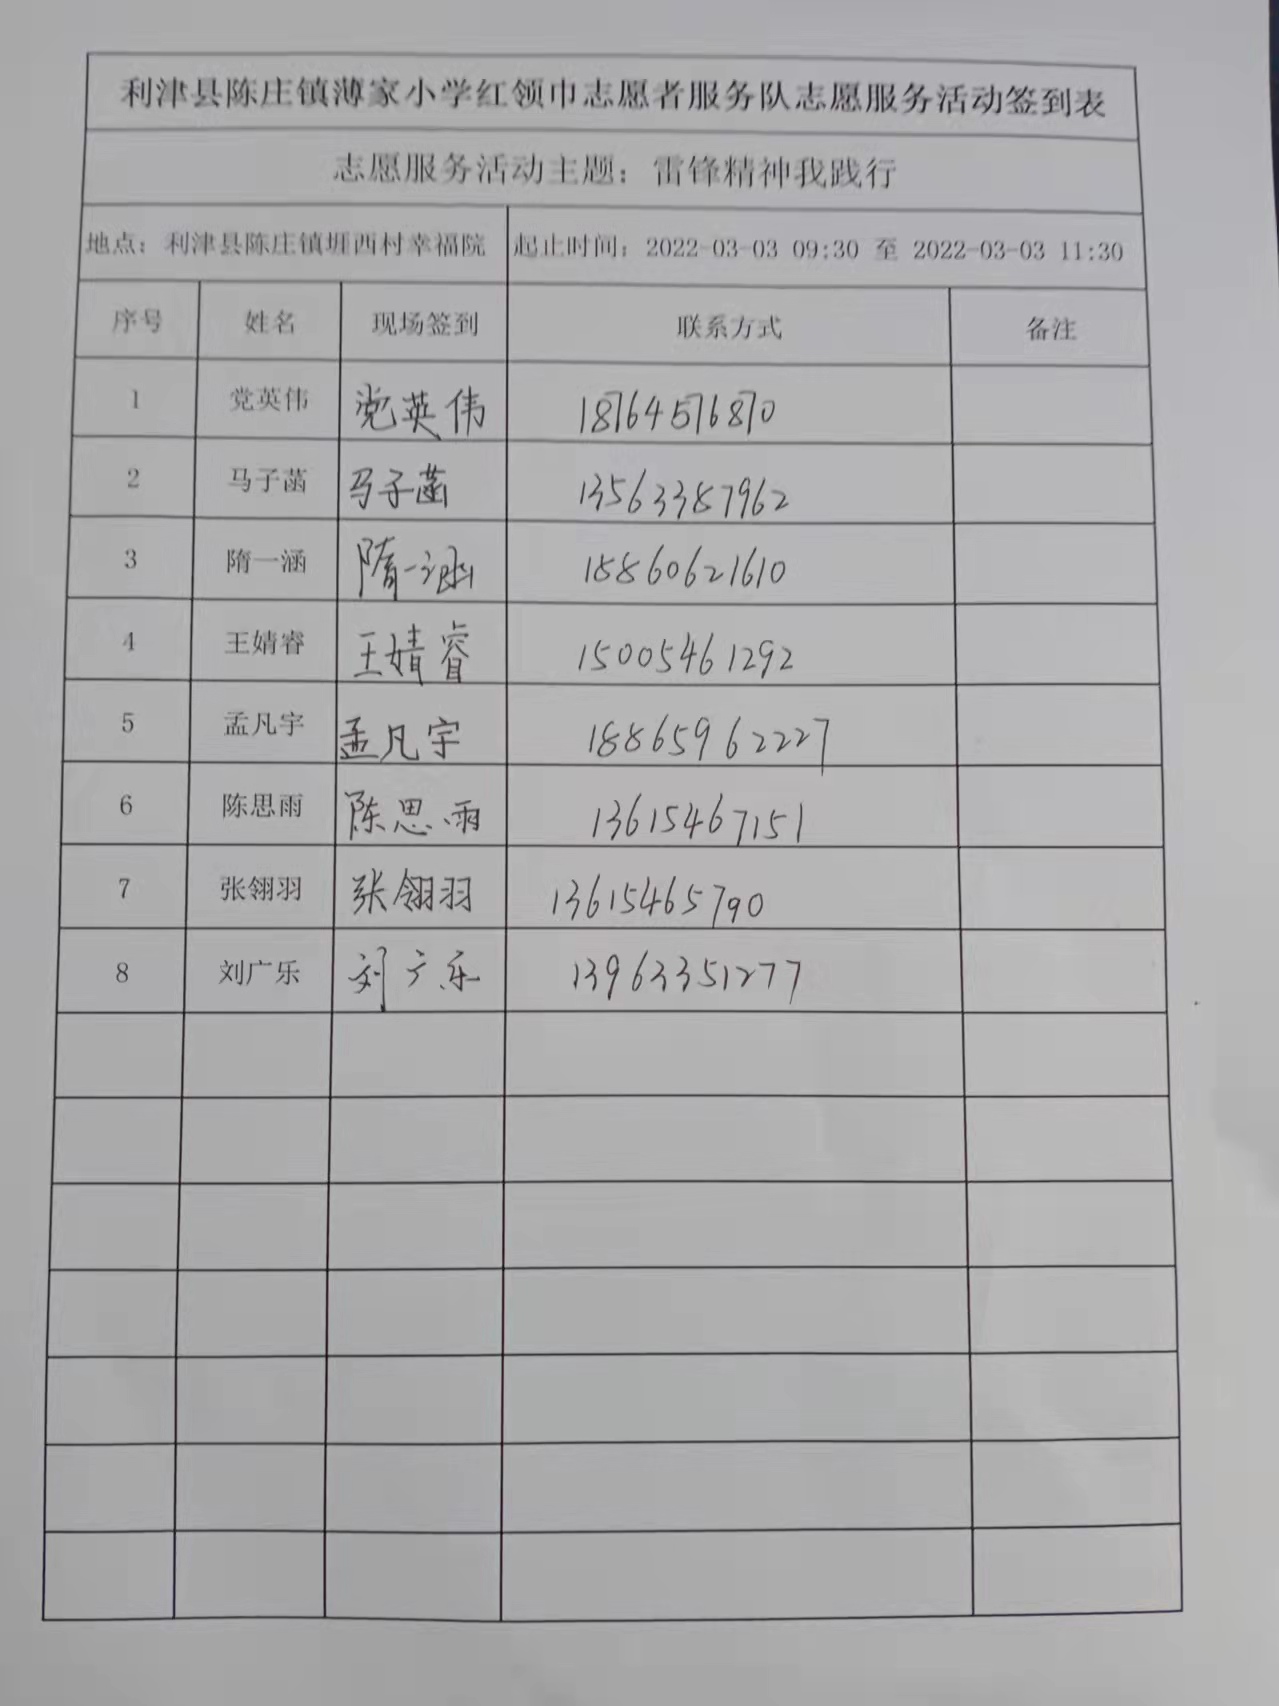 利津县陈庄镇薄家小学红领巾志愿者服务队志愿服务活动签到表
志愿服务活动主题：雷锋精神我践行
地点：利津县陈庄镇堐西村幸福院 起止时间：2022-03-03 09:30 至 2022-03-03 11:30
序号 姓名 现场签到 联系方式 备注
1 党英伟 党英伟 18764576870
2 马子菡 马子菡 13563387962
3 隋一涵 隋一涵 18860621610
4 王婧睿 王婧睿 15005461292
5 孟凡宇 孟凡宇 18865962227
6 陈思雨 陈思雨 13615467151
7 张翎羽 张翎羽 13615465790
8 刘广乐 刘广乐 13963351277